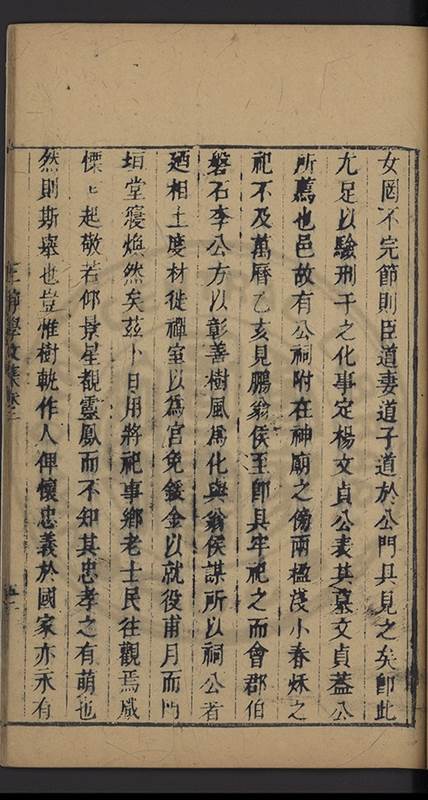 女罔不完節則臣道妻道子道於公門具見之矣卽此
尤足以驗刑于之化事定楊文貞公表其墓文貞蓋公
所薦也邑故有公祠附在神廟之傍兩楹淺小春秌之
祀不及萬曆乙亥見鵬翁侯至卽具牢祀之而會郡伯
磐石李公方以彰善樹風爲化與翁侯謀所以祠公者
廼相土度材徙禪室以爲宮免鍰金以就役甫月而門
垣堂寢煥然矣茲卜日用將祀事鄉老士民往觀焉咸
慄〻起敬若仰景星覩靈鳳而不知其忠孝之有萌也
然則斯舉也豈惟樹軌作人俾懷忠義於國家亦永有
文集卷